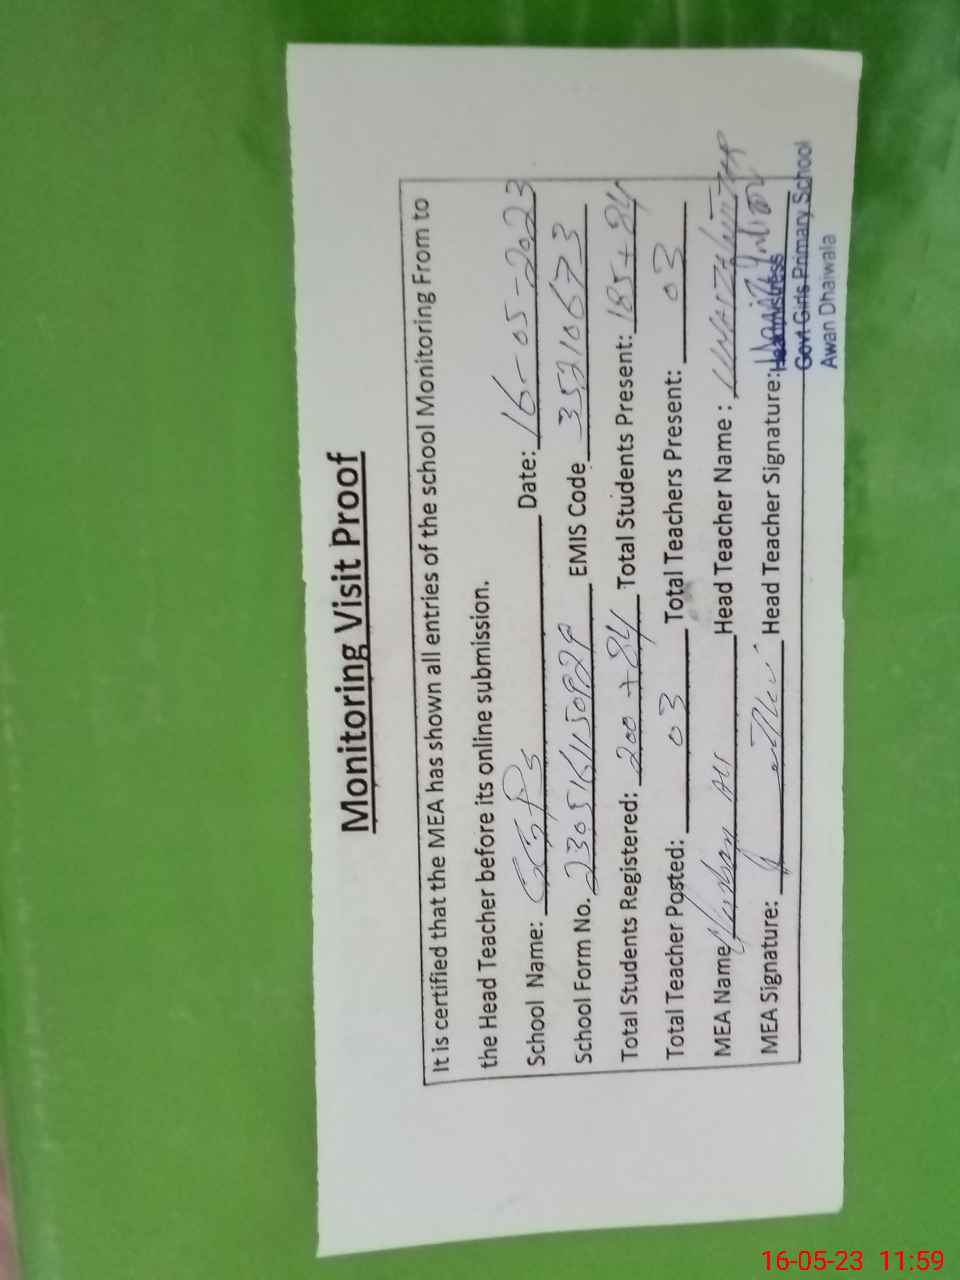 Monitoring Visit Proof
It is certified that the MEA has shown all entries of the school Monitoring From to
the Head Teacher before its online submission.
School Name: GGPS Date: 16-05-2023
School Form No. EMIS Code 35210673
Total Students Registered: 200 + 84 Total Students Present: 185 + 84
Total Teacher Posted: 03 Total Teachers Present: 03
MEA Name Ali Head Teacher Name :
MEA Signature: Head Teacher Signature:
Headmistress
Govt Girls Primary School
Awan Dhaiwala
16-05-23 11:59